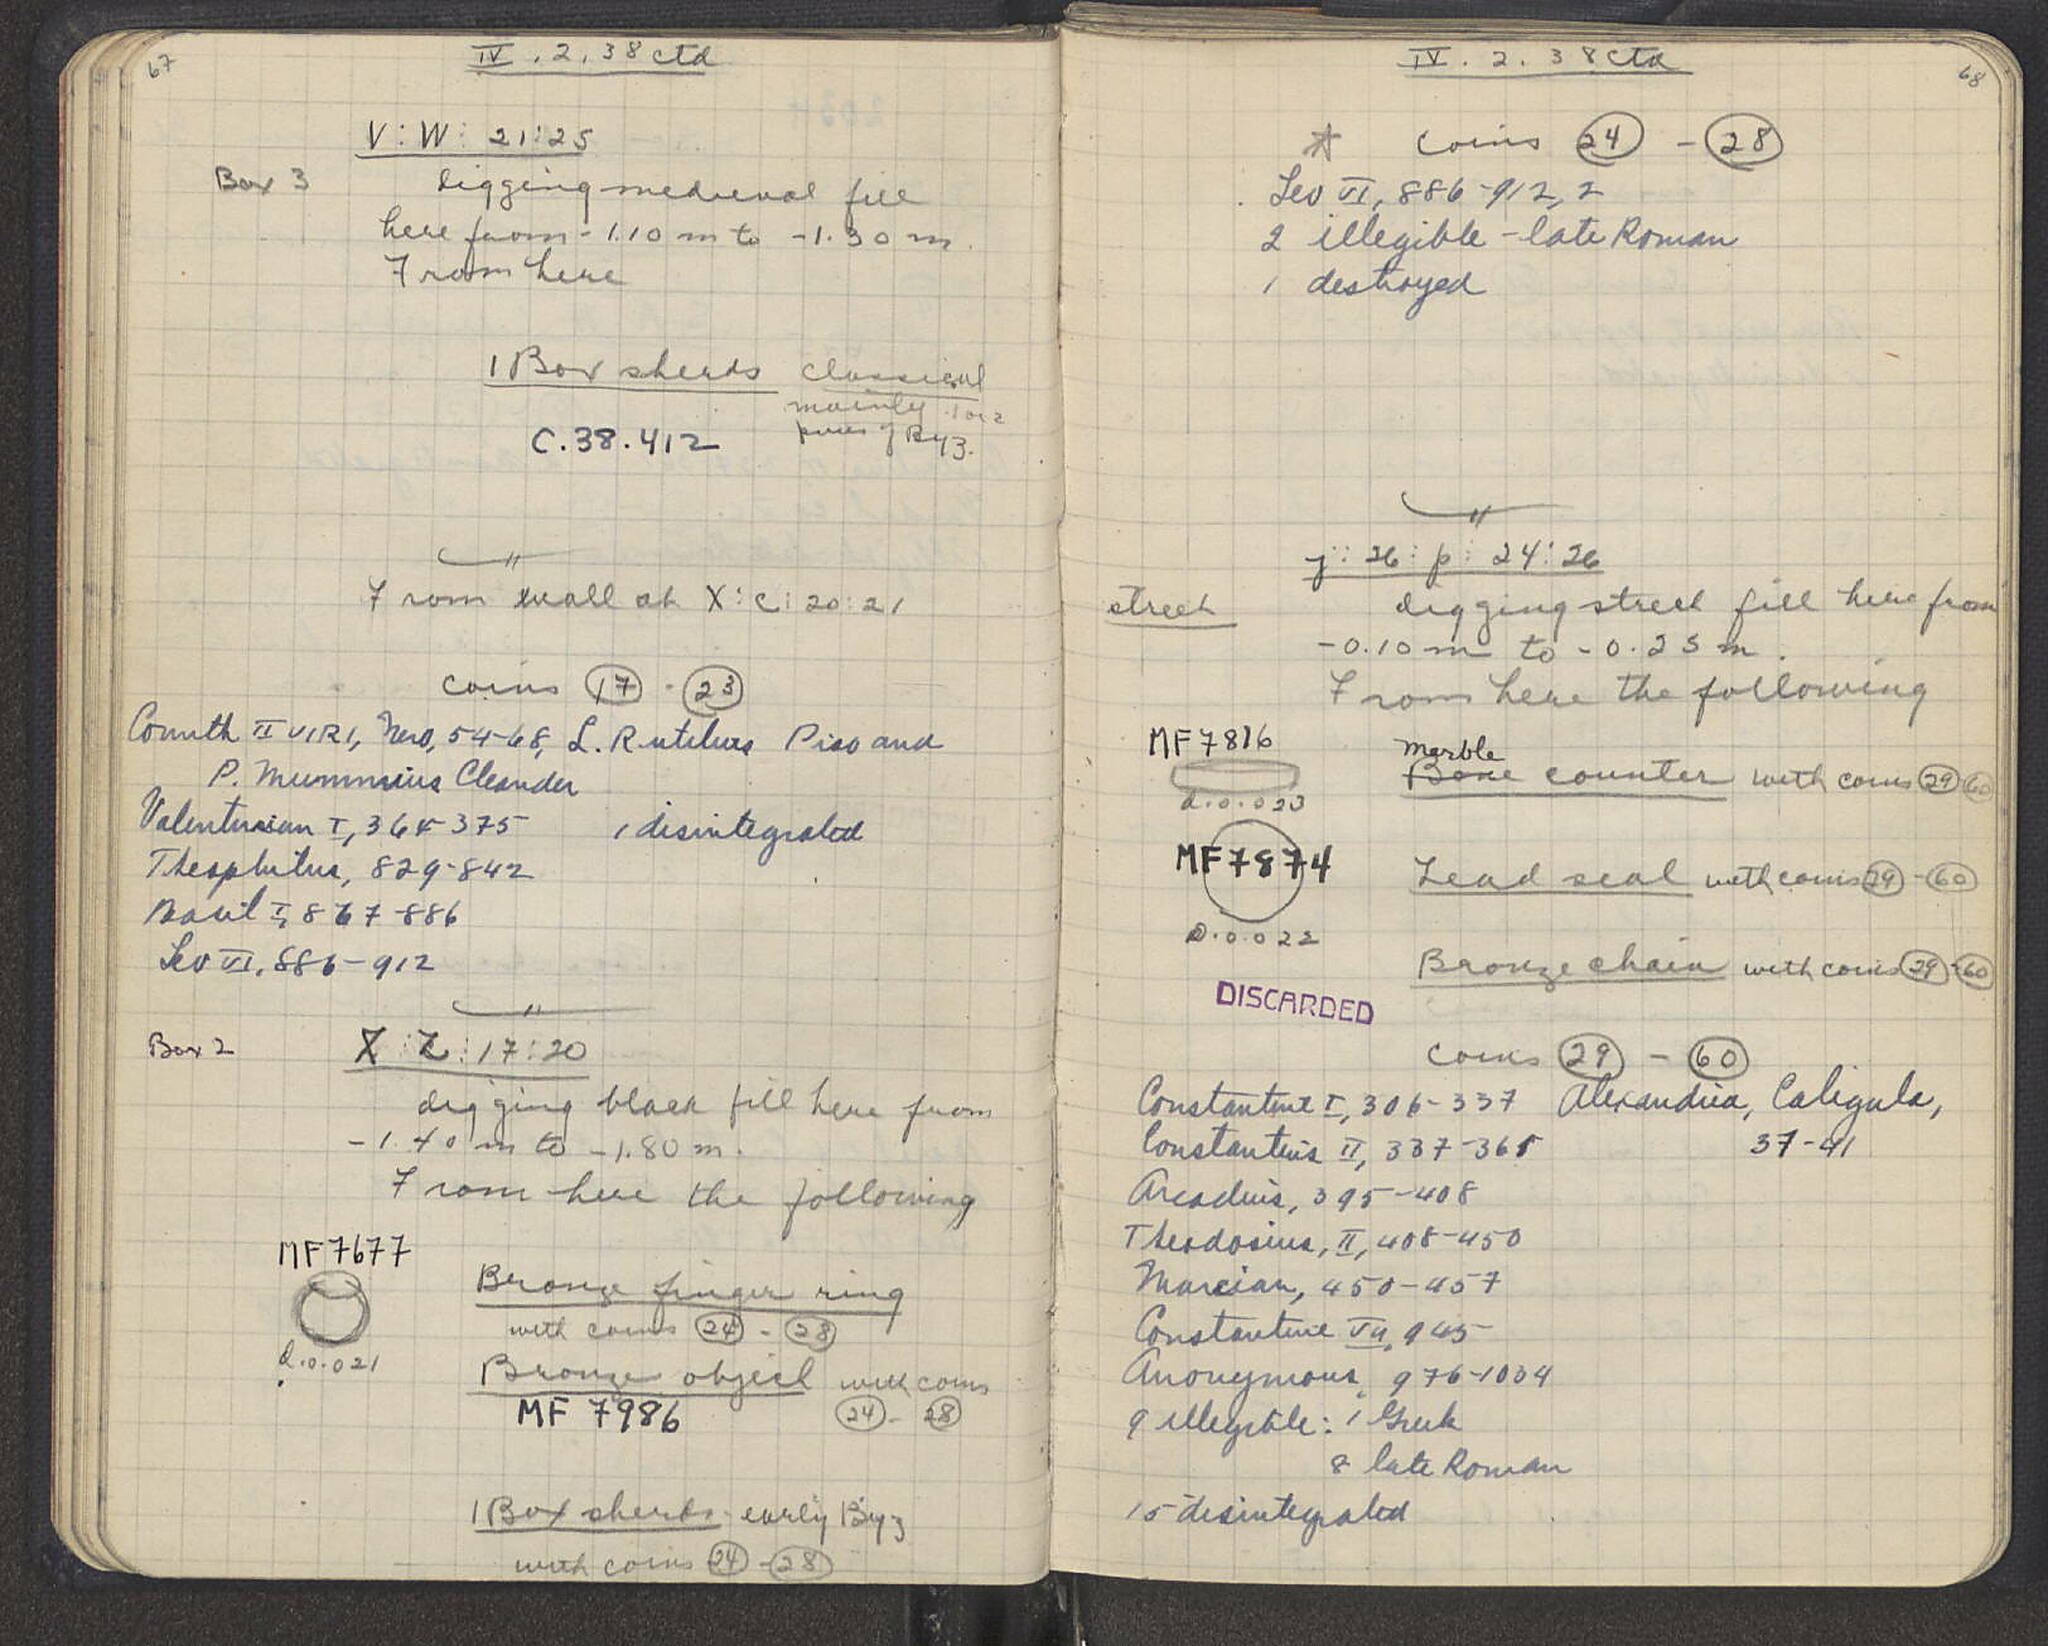 67
IV. 2. 38 ctd
V:W: 21:25
Box 3
digging medieval fill
here from -1.10 m to -1.30 m.
From here
1 Box sherds classical
mainly 1 or 2
pieces of Byz.
C.38.412
From wall at X:C:20:21
coins 17 - 23
Corinth II VIRI, Nero, 54-68, L. Rutilius Piso and
P. Mummius Cleander
Valentinian I, 364-375 1 disintegrated
Theophilus, 829-842
Basil I, 867-886
Leo VI, 886-912
Box 2
X:Z:17:20
digging black fill here from
-1.40 m to -1.80 m.
From here the following
MF 7677
d.0.021
Bronze finger ring
with coins 24 - 28
Bronze object with coins
24 - 28
MF 7986
1 Box sherds early Byz
with coins 24 - 28
68
IV. 2. 38 ctd
coins 24 - 28
Leo VI, 886-912, 2
2 illegible - late Roman
1 destroyed
j: 26: p: 24: 26
street
digging street fill here from
-0.10 m to -0.25 m.
From here the following
MF 7816
d.0.023
marble
Bone counter with coins 29 60
MF 7874
D.0.022
Lead seal with coins 29 - 60
Bronze chain with coins 29 - 60
DISCARDED
coins 29 - 60
Constantine I, 306-337 Alexandria, Caligula,
37-41
Constantius II, 337-361
Arcadius, 395-408
Theodosius, II, 408-450
Marcian, 450-457
Constantine VII, 945
Anonymous, 976-1034
9 illegible: 1 Greek
8 late Roman
15 disintegrated